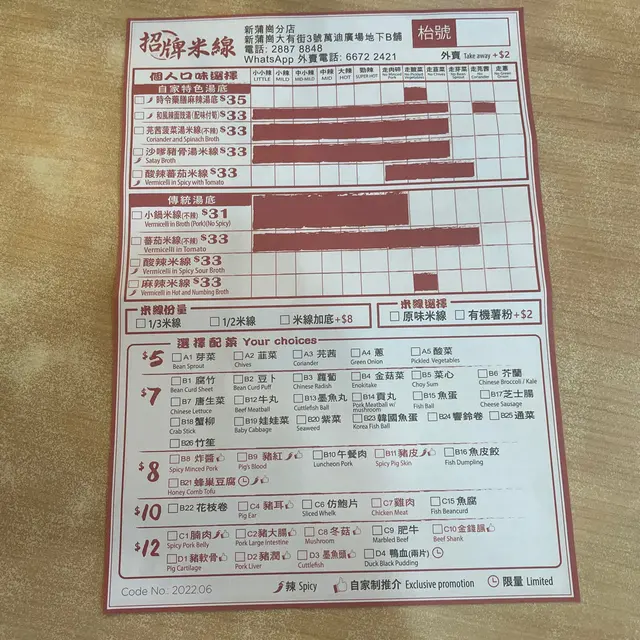 招牌米線
新蒲崗分店
新蒲崗大有街3號萬迪廣場地下B舖
電話: 2887 8848
WhatsApp 外賣電話: 6672 2421
枱號
外賣 Take away +$2
個人口味選擇
小小辣 LITTLE 小辣 MILD 中小辣 MID-MILD 中辣 MID 大辣 HOT 勁辣 SUPER HOT 走肉碎 No Minced Pork 走酸菜 No Pickled Vegetables 走韮菜 No Chives 走芽菜 No Bean Sprout 走芫茜 No Coriander 走蔥 No Green Onion
自家特色湯底
時令藥膳麻辣湯底 $35
和風辣面豉湯(配味付筍) $33
芫茜菠菜湯米線(不辣) $33
Coriander and Spinach Broth
沙嗲豬骨湯米線 $33
Satay Broth
酸辣蕃茄米線 $33
Vermicelli in Spicy with Tomato
傳統湯底
小鍋米線(不辣) $31
Vermicelli in Broth (Pork)(No Spicy)
蕃茄米線(不辣) $33
Vermicelli in Tomato
酸辣米線 $33
Vermicelli in Spicy Sour Broth
麻辣米線 $33
Vermicelli in Hot and Numbing Broth
米線份量
1/3米線 1/2米線 米線加底+$8
米線選擇
原味米線 有機薯粉+$2
選擇配菜 Your choices
$5
A1 芽菜 A2 韮菜 A3 芫茜 A4 蔥 A5 酸菜
Bean Sprout Chives Coriander Green Onion Pickled Vegetables
$7
B1 腐竹 B2 豆卜 B3 蘿蔔 B4 金菇菜 B5 菜心 B6 芥蘭
Bean Curd Sheet Bean Curd Puff Chinese Radish Enokitake Choy Sum Chinese Broccoli / Kale
B7 唐生菜 B12 牛丸 B13 墨魚丸 B14 貢丸 B15 魚蛋 B17 芝士腸
Chinese Lettuce Beef Meatball Cuttlefish Ball Pork Meatball w/ mushroom Fish Ball Cheese Sausage
B18 蟹柳 B19 娃娃菜 B20 紫菜 B23 韓國魚蛋 B24 響鈴卷 B25 通菜
Crab Stick Baby Cabbage Seaweed Korea Fish Ball
B26 竹笙
$8
B8 炸醬 B9 豬紅 B10 午餐肉 B11 豬皮 B16 魚皮餃
Spicy Minced Pork Pig's Blood Luncheon Pork Spicy Pig Skin Fish Dumpling
B21 蜂巢豆腐
Honey Comb Tofu
$10
B22 花枝卷 C4 豬耳 C6 仿鮑片 C7 雞肉 C15 魚腐
Pig Ear Sliced Whelk Chicken Meat Fish Beancurd
$12
C1 腩肉 C2 豬大腸 C8 冬菇 C9 肥牛 C10 金錢𦟌
Spicy Pork Belly Pork Large Intestine Mushroom Marbled Beef Beef Shank
D1 豬軟骨 D2 豬潤 D3 墨魚頭 D4 鴨血(兩片)
Pig Cartilage Pork Liver Cuttlefish Duck Black Pudding
Code No. 2022.06
辣 Spicy 自家制推介 Exclusive promotion 限量 Limited